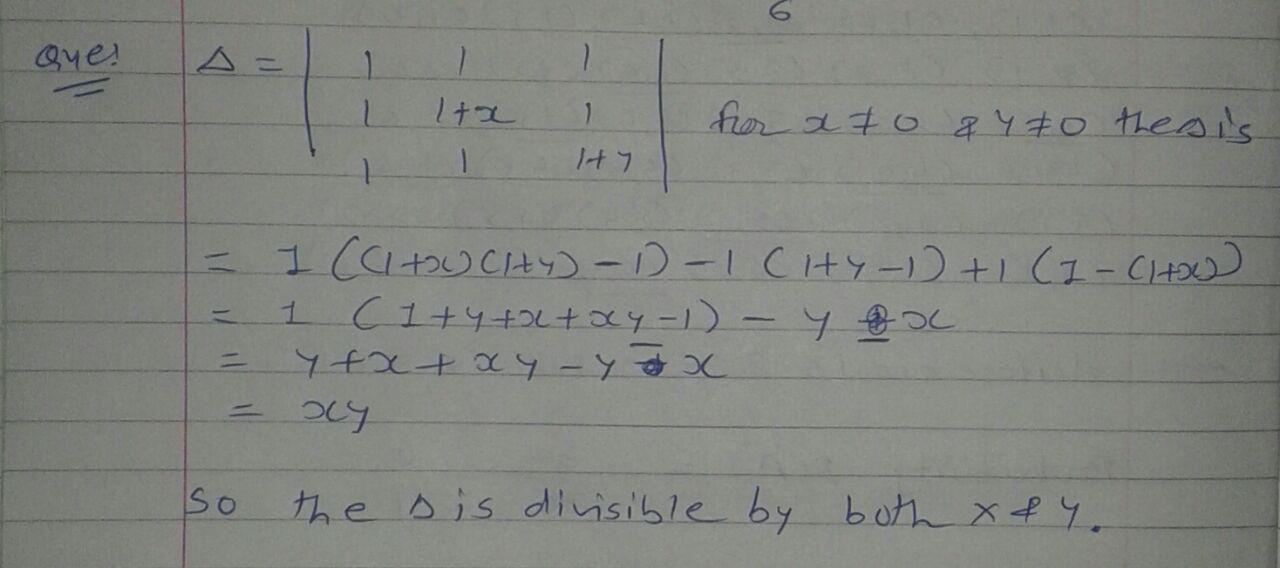 6
Ques Δ = | 1 1 1 |
| 1 1+x 1 | for x ≠ 0 & y ≠ 0 the Δ is
| 1 1 1+y |
= 1 ((1+x)(1+y) - 1) - 1 (1+y-1) + 1 (1 - (1+x))
= 1 (1+y+x+xy-1) - y - x
= y+x+xy-y-x
= xy
So the Δ is divisible by both x & y.